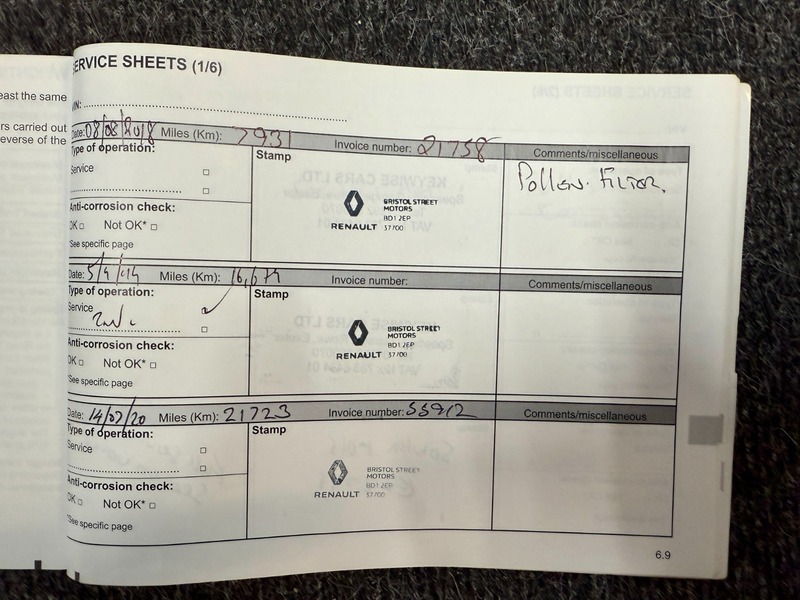 east the same
rs carried out
everse of the
ERVICE SHEETS (1/6)
VIN:
Date: 08/08/2018 Miles (Km): 7931 Invoice number: 21758 Comments/miscellaneous
Type of operation:
Service
Stamp
Pollen. Filter.
Anti-corrosion check:
OK Not OK*
*See specific page
BRISTOL STREET
MOTORS
BD1 2EP
RENAULT 37700
Date: 5/9/19 Miles (Km): 16,679 Invoice number: Comments/miscellaneous
Type of operation:
Service
Stamp
Anti-corrosion check:
OK Not OK*
*See specific page
BRISTOL STREET
MOTORS
BD1 2EP
RENAULT 37700
Date: 14/07/20 Miles (Km): 21723 Invoice number: 55912 Comments/miscellaneous
Type of operation:
Service
Stamp
Anti-corrosion check:
OK Not OK*
*See specific page
BRISTOL STREET
MOTORS
BD1 2EP
RENAULT 37700
6.9